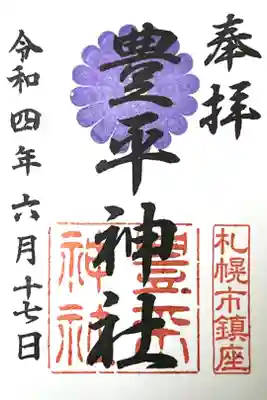 奉拝
札幌市鎮座
豊平神社
豊平
神社
令和四年六月十七日